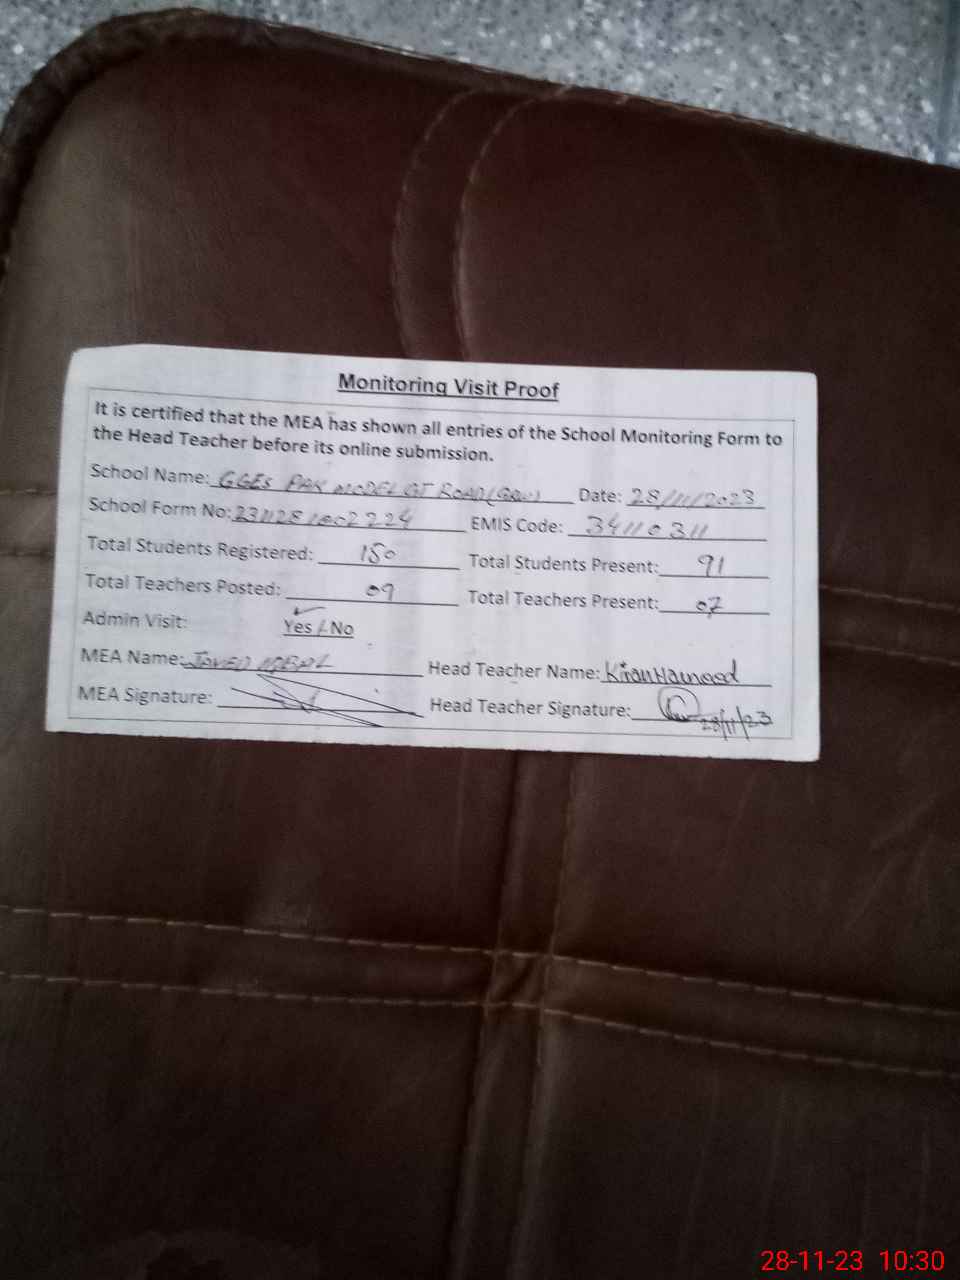 Monitoring Visit Proof
It is certified that the MEA has shown all entries of the School Monitoring Form to
the Head Teacher before its online submission.
School Name: GGES PAK MODEL GT ROAD (GRW) Date: 28/11/2023
School Form No: EMIS Code: 34110311
Total Students Registered: 150 Total Students Present: 91
Total Teachers Posted: 09 Total Teachers Present: 07
Admin Visit: Yes / No
MEA Name: JAVED IQBAL Head Teacher Name: Kiran Hameed
MEA Signature: Head Teacher Signature: 28/11/23
28-11-23 10:30